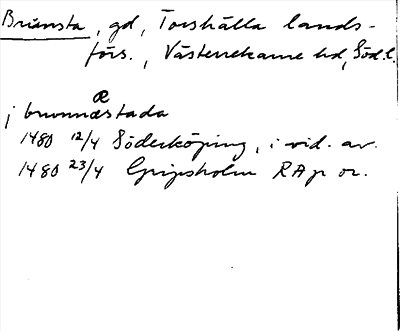 Brunsta, gd, Torshälla lands-
förs., Västerrekarne hd, Söd. l.
æ
j brunnæstada
1480 12/4 Söderköping, i vid. av.
1480 23/4 Gripsholm RAp or.